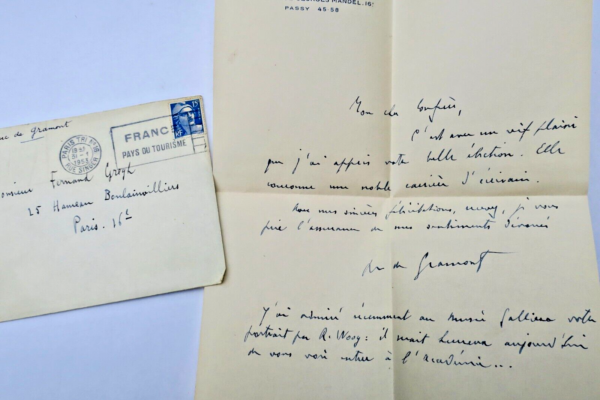 GEORGES MANDEL, 16
PASSY 45-58
Mon cher Confrère,
C'est avec un vif plaisir
que j'ai appris votre belle élection. Elle
couronne une noble carrière d'écrivain.
mes sincères félicitations, je vous
prie l'assurance de mes sentiments dévoués
de Gramont
J'ai admiré récemment au musée Galliera votre
portrait par R. Woog : il serait heureux aujourd'hui
de vous voir entrer à l'Académie...
de Gramont
PARIS
1953
R. SINGER
FRANCE
PAYS DU TOURISME
15F
Monsieur Fernand Gregh
25 Hameau Boulainvilliers
Paris. 16e